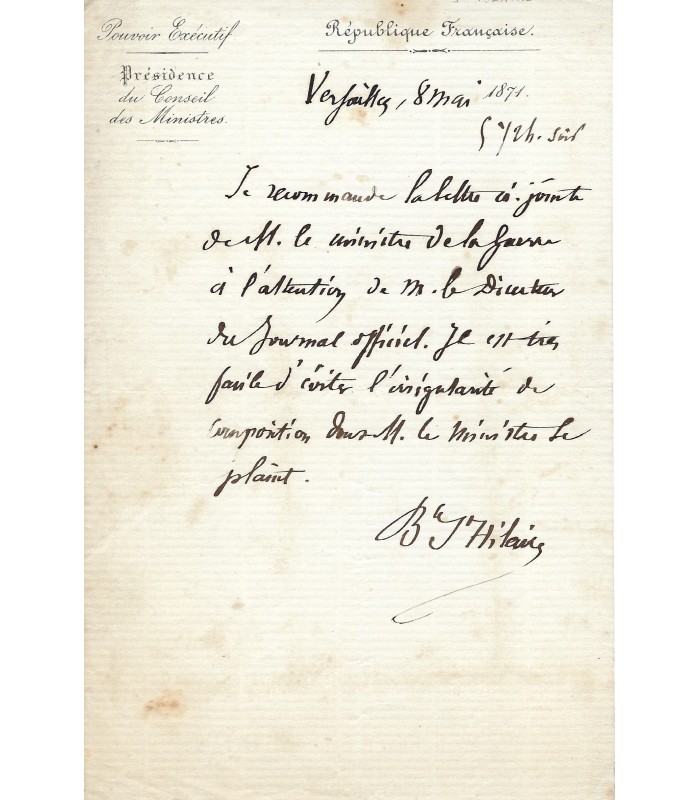 Pouvoir Exécutif
République Française.
Présidence
du Conseil
des Ministres.
Versailles, 8 mai 1871.
5 1/2 h. soir
Je recommande la lettre ci-jointe
de M. le ministre de la Guerre
à l'attention de M. le Directeur
du Journal officiel. Il est très
facile d'éviter l'irrégularité de
composition dont M. le Ministre se
plaint.
Bы St Hilaire